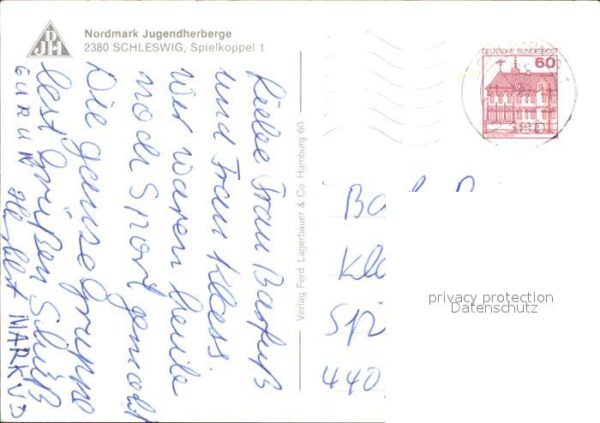 Nordmark Jugendherberge
2380 SCHLESWIG, Spielkoppel 1
DJH
DEUTSCHE BUNDESPOST
60
Liebe Frau Barfuß
und Frau Klass
Wir waren heute
noch Sport gemacht
Die ganze Gruppe
lest grüßen Schüß
MARKUS
Verlag Ferd. Lagerbauer & Co. Hamburg 60
Ba
Kla
Spi
440
privacy protection
Datenschutz